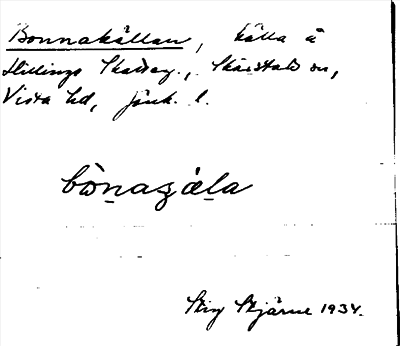 Bonnakällan, källa å
Hillings Skatteg., Skärstads sn,
Vista hd, Jönk. l.
bònaʒǽla
Stig Stjärne 1934.